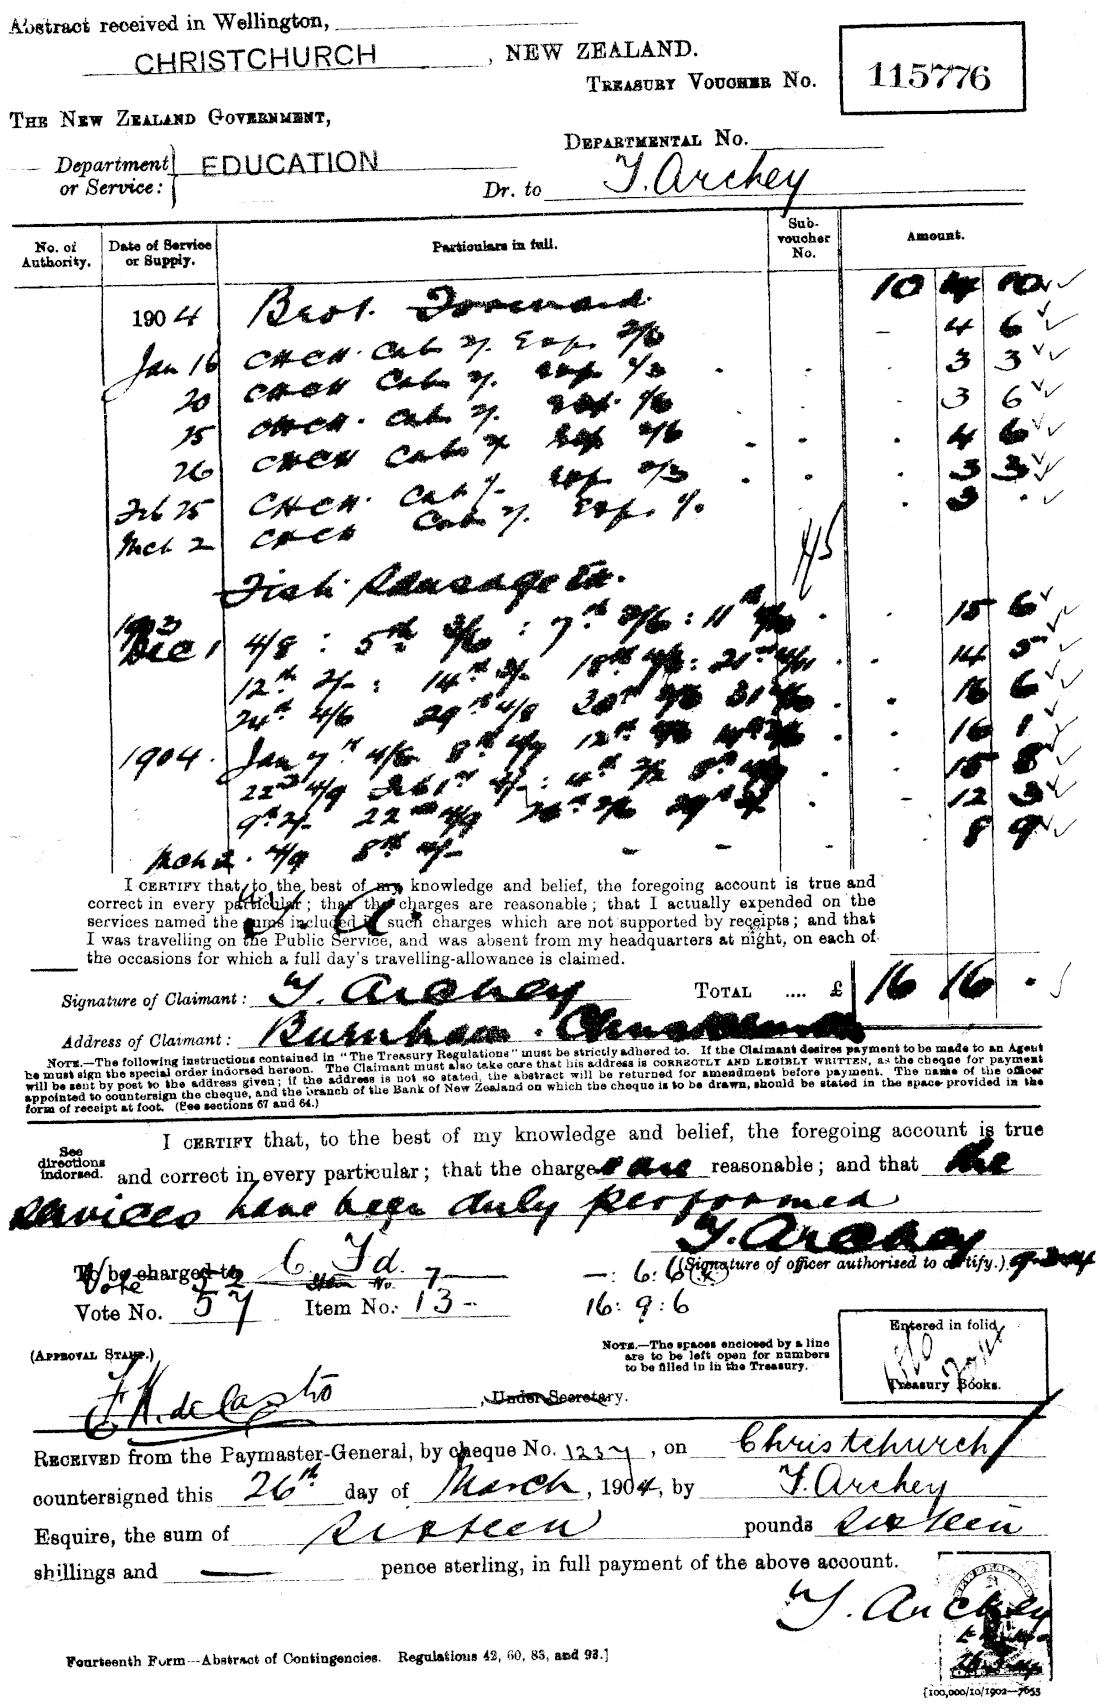 Abstract received in Wellington,
CHRISTCHURCH, NEW ZEALAND.
TREASURY VOUCHER No. 115776
THE NEW ZEALAND GOVERNMENT,
DEPARTMENTAL No.
Department or Service: EDUCATION
Dr. to T. Archey
No. of Authority. Date of Service or Supply. Particulars in full. Sub-voucher No. Amount.
1904 Brot. Forward 10
Jan 16 CHCH. Cab 2/. Exp. 2/6 4 6
20 CHCH Cab 2/. Exp. 1/3 3 3
25 CHCH. Cab 2/. Exp. 1/6 3 6
26 CHCH Cab 2/ Exp 2/6 4 6
Feb 25 CHCH. Cab 1/- Exp. 2/3 3 3
Mch 2 CHCH Cab 2/. Exp. 1/. 3 .
Fish Sausage
1903
Dec 1 4/8 : 5th 3/6 : 7th : 11th 15 6
12th 2/- : 14th 3/- 18th : 21st 14 5
24th 4/6 29th 4/8 30th 31 16 6
1904. Jan 7th 4/6 8th 4/9 12th 16 1
22nd 4/9 Feb 1st : 4th 8th 15 8
9th 2/- 22nd 4/9 26th 2/6 29th 12 3
Mch 2. 4/9 8th 4/- - - 8 9
I CERTIFY that, to the best of my knowledge and belief, the foregoing account is true and
correct in every particular; that the charges are reasonable; that I actually expended on the
services named the sums included in such charges which are not supported by receipts; and that
I was travelling on the Public Service, and was absent from my headquarters at night, on each of
the occasions for which a full day's travelling-allowance is claimed.
Signature of Claimant: T. Archey TOTAL .... £ 16 16 .
Address of Claimant: Burnham.
NOTE.—The following instructions contained in "The Treasury Regulations" must be strictly adhered to. If the Claimant desires payment to be made to an Agent
he must sign the special order indorsed hereon. The Claimant must also take care that his address is CORRECTLY AND LEGIBLY WRITTEN, as the cheque for payment
will be sent by post to the address given; if the address is not so stated, the abstract will be returned for amendment before payment. The name of the officer
appointed to countersign the cheque, and the branch of the Bank of New Zealand on which the cheque is to be drawn, should be stated in the space provided in the
form of receipt at foot. (See sections 67 and 64.)
See directions indorsed.
I CERTIFY that, to the best of my knowledge and belief, the foregoing account is true
and correct in every particular; that the charges are reasonable; and that the
services have been duly performed
T. Archey
(Signature of officer authorised to certify.)
To be charged to
Vote 52 Item No. 7 -: 6: 6
Vote No. 57 Item No: 13- 16: 9: 6
NOTE.—The spaces enclosed by a line
are to be left open for numbers
to be filled in in the Treasury.
Entered in folio
Treasury Books.
(APPROVAL STAMP.)
F.K. de Castro, Under-Secretary.
RECEIVED from the Paymaster-General, by cheque No. 1237, on Christchurch
countersigned this 26th day of March, 1904, by T. Archey
Esquire, the sum of Sixteen pounds Sixteen
shillings and — pence sterling, in full payment of the above account.
T. Archey
Fourteenth Form—Abstract of Contingencies. Regulations 42, 60, 83, and 93.]
[100,000/10/1902—7653